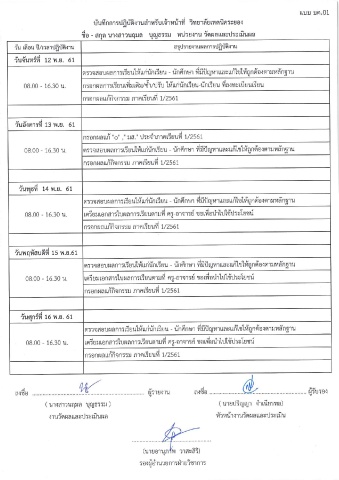 แบบ บค.01
บันทึกการปฏิบัติงานสำหรับเจ้าหน้าที่ วิทยาลัยเทคนิคระยอง
ชื่อ - สกุล นางสาวนฤมล บุญธรรม หน่วยงาน วัดผลและประเมินผล
วัน เดือน ปี/เวลาปฏิบัติงาน สรุปรายงานผลการปฏิบัติงาน
วันจันทร์ที่ 12 พ.ย. 61
08.00 - 16.30 น.
ตรวจสอบผลการเรียนให้แก่นักเรียน - นักศึกษา ที่มีปัญหาและแก้ไขให้ถูกต้องตามหลักฐาน
กรอกผลการเรียนเพิ่มเติม ให้แก่นักเรียน-นักศึกษา
กรอกผลแก้กิจกรรม ภาคเรียนที่ 1/2561
วันอังคารที่ 13 พ.ย. 61
08.00 - 16.30 น.
กรอกผลแก้ "๐" , "มส." ประจำภาคเรียนที่ 1/2561
ตรวจสอบผลการเรียนให้แก่นักเรียน - นักศึกษา ที่มีปัญหาและแก้ไขให้ถูกต้องตามหลักฐาน
กรอกผลแก้กิจกรรม ภาคเรียนที่ 1/2561
วันพุธที่ 14 พ.ย. 61
08.00 - 16.30 น.
ตรวจสอบผลการเรียนให้แก่นักเรียน - นักศึกษา ที่มีปัญหาและแก้ไขให้ถูกต้องตามหลักฐาน
เตรียมเอกสารใบผลการเรียนตามที่ ครู-อาจารย์ ขอเพื่อนำไปใช้ประโยชน์
กรอกผลแก้กิจกรรม ภาคเรียนที่ 1/2561
วันพฤหัสบดีที่ 15 พ.ย.61
08.00 - 16.30 น.
ตรวจสอบผลการเรียนให้แก่นักเรียน - นักศึกษา ที่มีปัญหาและแก้ไขให้ถูกต้องตามหลักฐาน
เตรียมเอกสารใบผลการเรียนตามที่ ครู-อาจารย์ ขอเพื่อนำไปใช้ประโยชน์
กรอกผลแก้กิจกรรม ภาคเรียนที่ 1/2561
วันศุกร์ที่ 16 พ.ย. 61
08.00 - 16.30 น.
ตรวจสอบผลการเรียนให้แก่นักเรียน - นักศึกษา ที่มีปัญหาและแก้ไขให้ถูกต้องตามหลักฐาน
เตรียมเอกสารใบผลการเรียนตามที่ ครู-อาจารย์ ขอเพื่อนำไปใช้ประโยชน์
กรอกผลแก้กิจกรรม ภาคเรียนที่ 1/2561
ลงชื่อ ผู้รายงาน ลงชื่อ ผู้รับรอง
( นางสาวนฤมล บุญธรรม ) ( นายปริญญา )
งานวัดผลและประเมินผล หัวหน้างานวัดผลและประเมิน
รองผู้อำนวยการฝ่ายวิชาการ